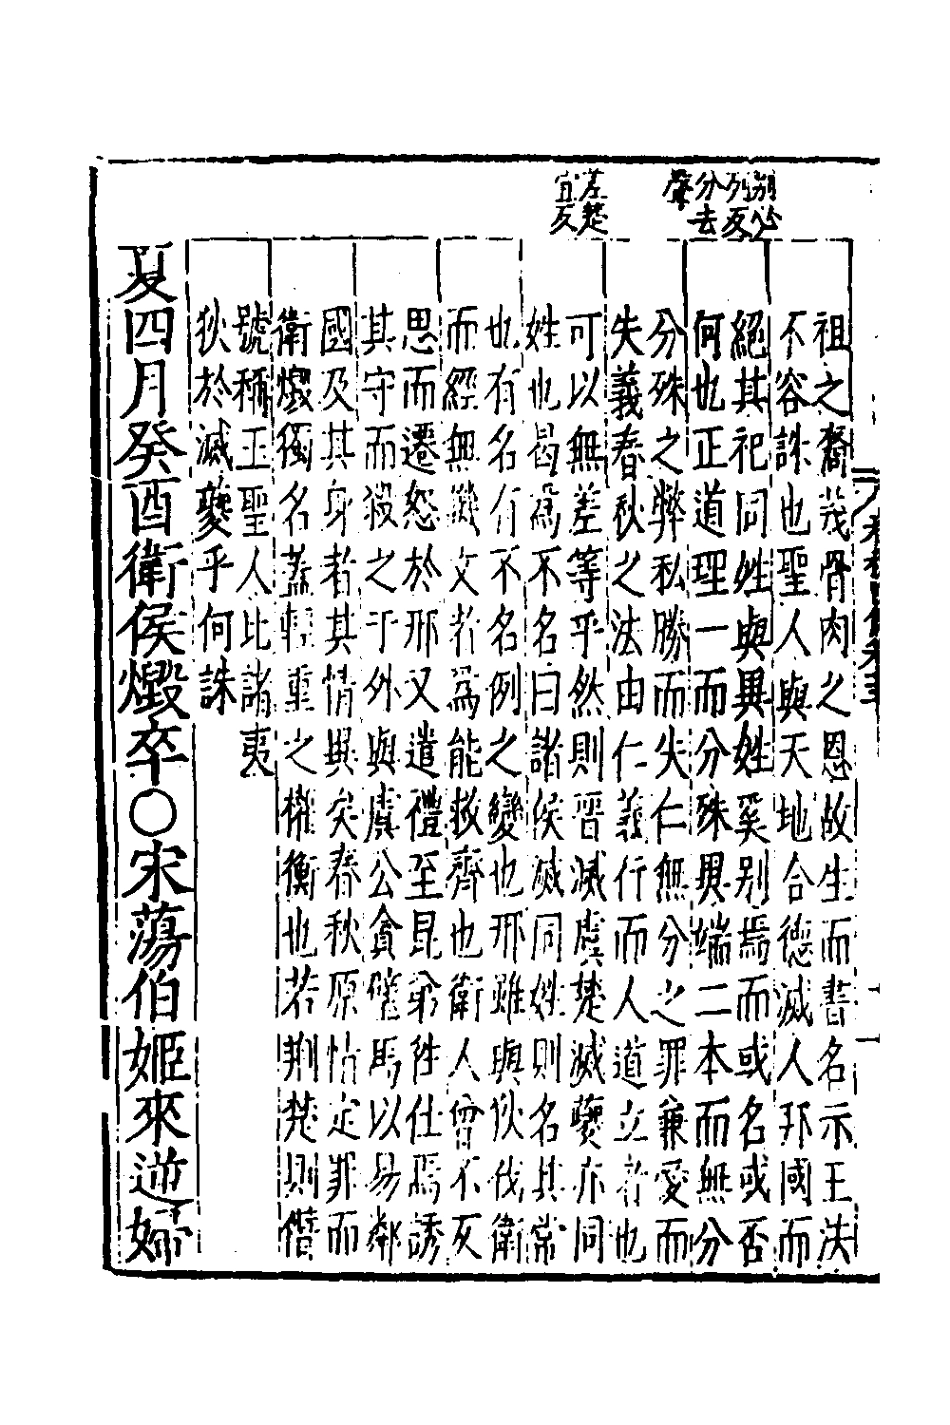 別必
列反
分去
聲
差楚
宜反
祖之裔蔑骨肉之恩故生而書名示王法
不容誅也聖人與天地合德滅人邦國而
絕其祀同姓與異姓奚別焉而或名或否
何也正道理一而分殊異端二本而無分
分殊之弊私勝而失仁無分之罪兼愛而
失義春秋之法由仁義行而人道立者也
可以無差等乎然則晉滅虞楚滅夔亦同
姓也曷為不名曰諸侯滅同姓則名其常
也有名有不名例之變也邢雖與狄伐衛
而經無譏文者為能救齊也衛人曾不反
思而遷怒於邢又遣禮至昆弟徃仕焉誘
其守而殺之于外與虞公貪璧馬以易鄰
國及其身者其情異矣春秋原情定罪而
衛燬獨名蓋輕重之權衡也若荆楚則僭
號稱王聖人比諸夷
狄於滅夔乎何誅
夏四月癸酉衛侯燬卒○宋蕩伯姬來逆婦